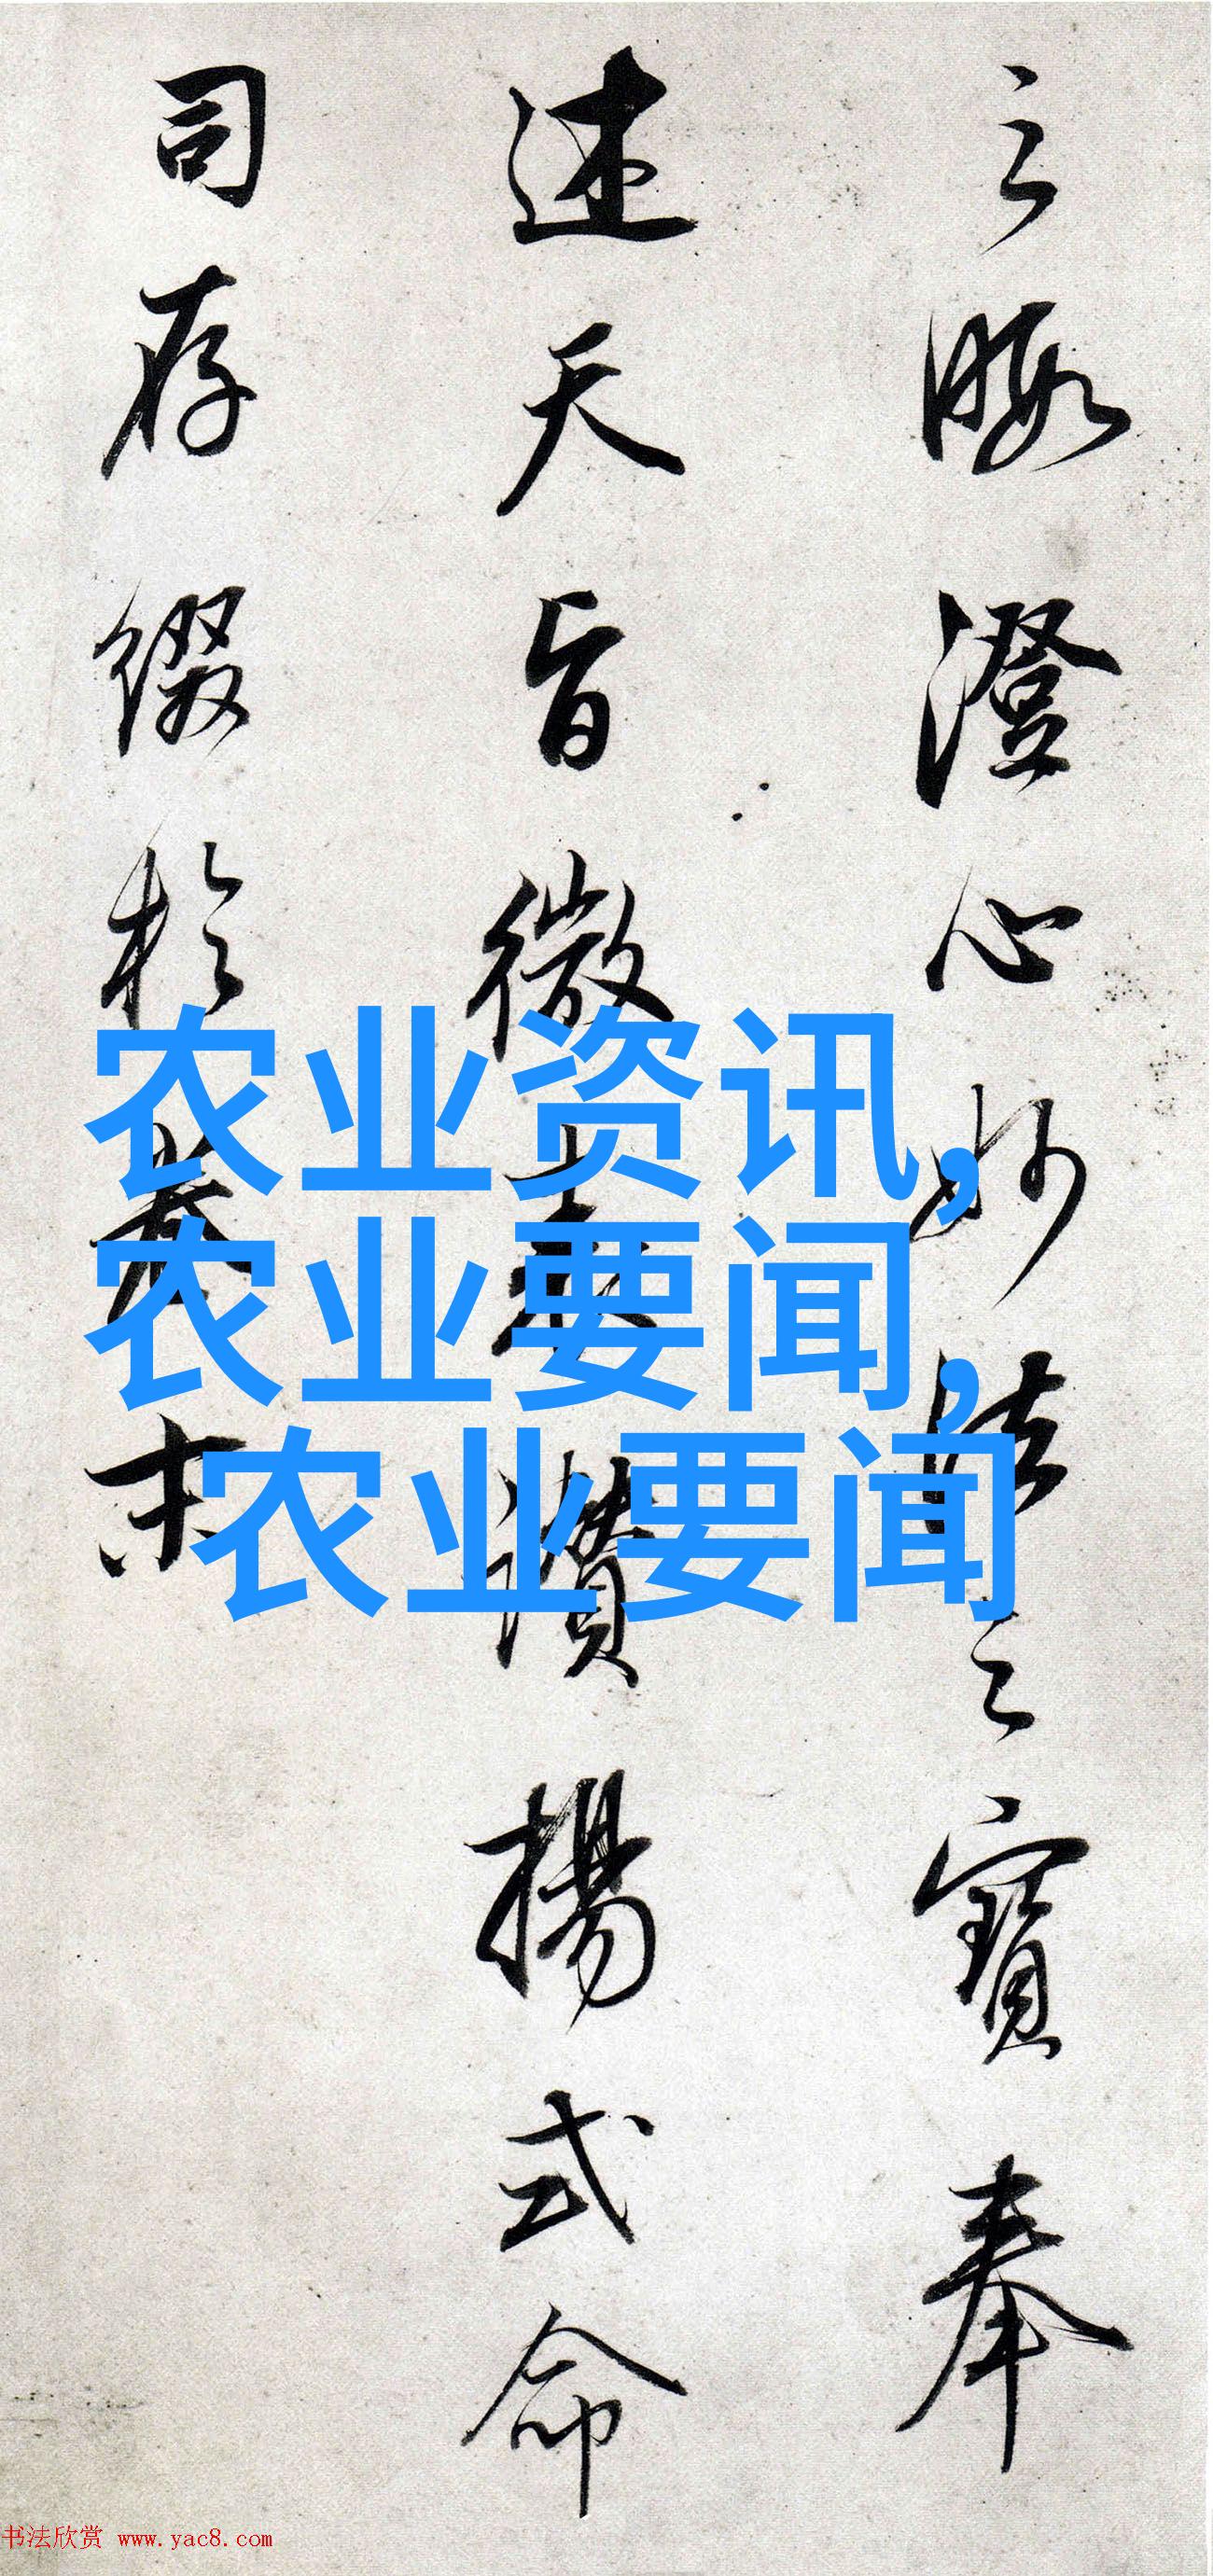 之暇澄心妙法之寶奉
述天旨微表讚揚式命
司存綴於卷末
农业资讯,
农业要闻,
农业要闻
书法欣赏 www.yac8.com